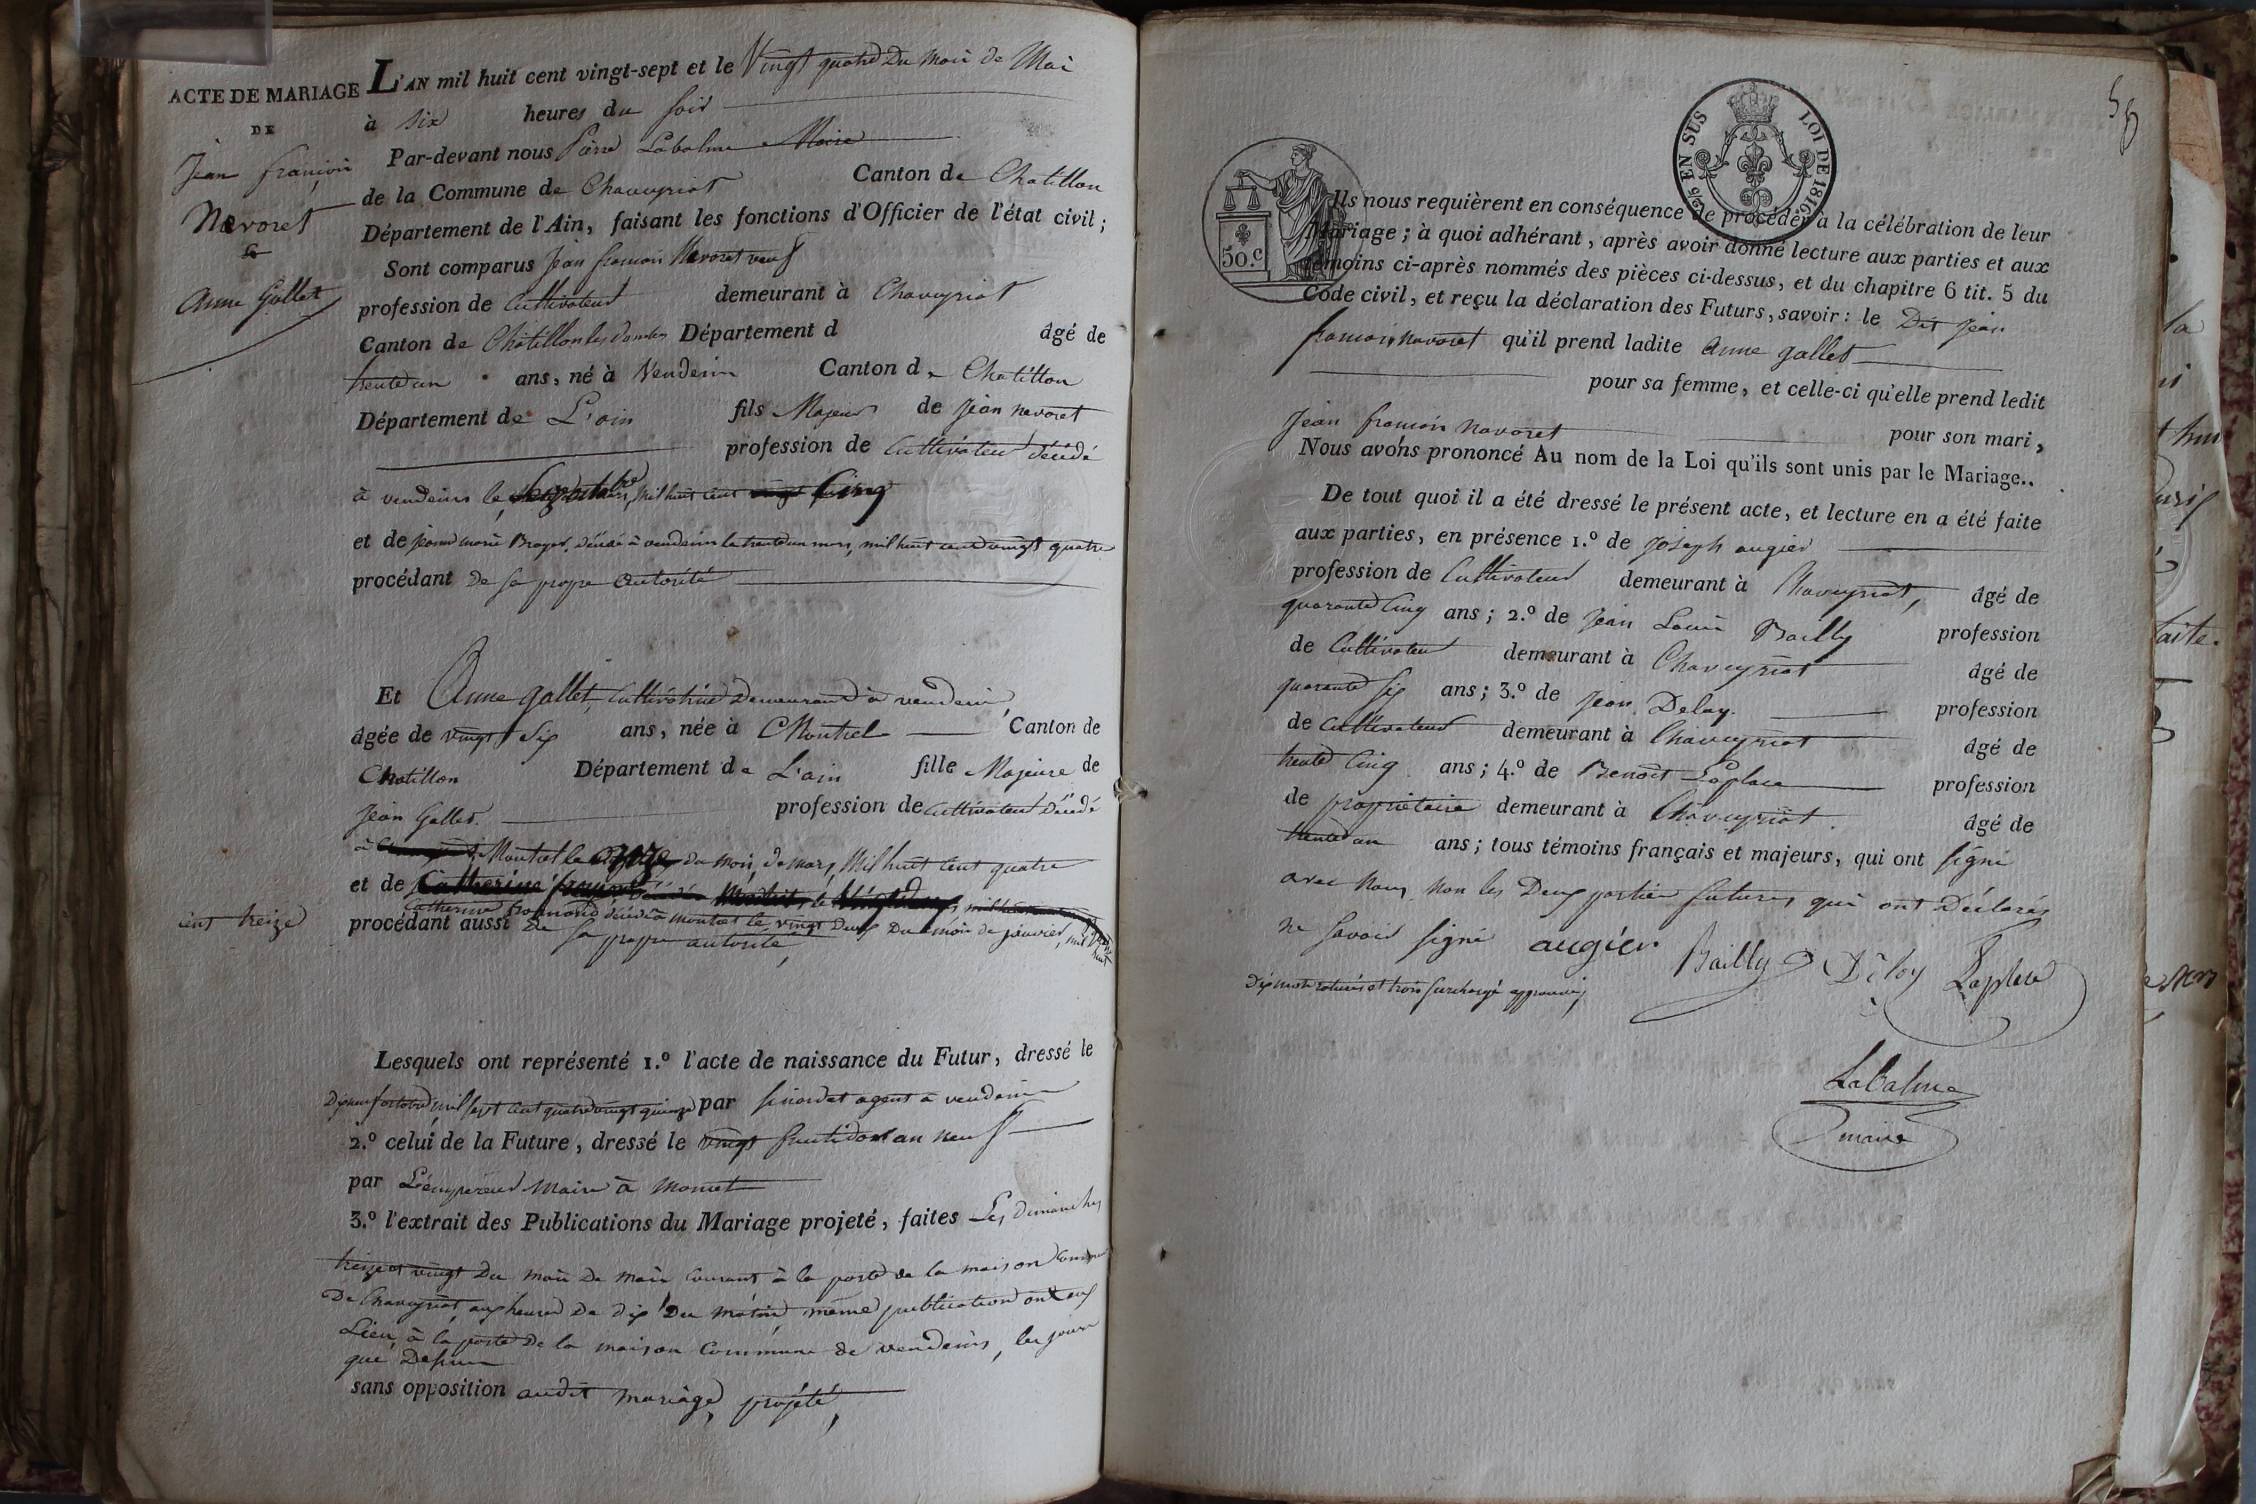 ACTE DE MARIAGE
DE
Jean françois
Navoret
&
Anne Gallet
L'AN mil huit cent vingt-sept et le Vingt quatre Du mois de Mai
à six heures du soir
Par-devant nous Pierre Labalme Maire
de la Commune de Chaveyriat Canton de Chatillon
Département de l'Ain, faisant les fonctions d'Officier de l'état civil ;
Sont comparus Jean françois Navoret veuf
profession de Cultivateur demeurant à Chaveyriat
Canton de Chatillon les dombes Département d âgé de
trente un ans, né à Vendeins Canton de Chatillon
Département de L'ain fils Majeur de Jean navoret
profession de Cultivateur décédé
à vendeins le mil huit cent vingt cinq
et de jeanne marie Broyer, décédé à vendeins le trente un mars, mil huit cent vingt quatre
procédant de sa propre autorité
Et Anne gallet, Cultivatrice Demeurand à vendeins,
âgée de vingt six ans, née à Montcel Canton de
Chatillon Département de L'ain fille Majeure de
Jean Gallet. profession de Cultivateur Décédé
à Montcet le onze du mois de mars, Mil huit cent quatre
et de Catherine
Catherine décédé à montcet le vingt Deux Du mois de janvier, mil huit
cent treize
procédant aussi de sa propre autorité,
Lesquels ont représenté 1.º l'acte de naissance du Futur, dressé le
Dixneuf octobre mil sept cent quatrevingt quinze par agent à vendeins
2.º celui de la Future, dressé le vingt an neuf
par Maire à Montcet
3.º l'extrait des Publications du Mariage projeté, faites Les dimanches
treize et vingt Du mois De mai Courant à la porte de la maison Commune
De Chaveyriat, aux heures De dix Du matin, même publication ont eux
Lieu, à la porte De la maison Commune de vendeins, les jours
que Dessus
sans opposition audit mariage, projeté,
56
1,25 EN SUS LOI DE 1816
50.c
Ils nous requièrent en conséquence de procéder à la célébration de leur
Mariage ; à quoi adhérant, après avoir donné lecture aux parties et aux
témoins ci-après nommés des pièces ci-dessus, et du chapitre 6 tit. 5 du
Code civil, et reçu la déclaration des Futurs, savoir : le Dit Jean
francois navoret qu'il prend ladite Anne gallet
pour sa femme, et celle-ci qu'elle prend ledit
Jean francois navoret pour son mari,
Nous avons prononcé Au nom de la Loi qu'ils sont unis par le Mariage..
De tout quoi il a été dressé le présent acte, et lecture en a été faite
aux parties, en présence 1.º de Joseph augier
profession de Cultivateur demeurant à Chaveyriat, âgé de
quarante Cinq ans ; 2.º de Jean Louis Bailly profession
de Cultivateur demeurant à Chaveyriat âgé de
quarante six ans ; 3.º de Jean Delay. profession
de Cultivateur demeurant à Chaveyriat âgé de
trente Cinq ans ; 4.º de Benoît Laplace profession
de propriétaire demeurant à Chaveyriat. âgé de
trente un ans ; tous témoins français et majeurs, qui ont signé
avec Nous, Non les Deux parties futures qui ont Déclarés
ne savoir signé augier Bailly Déloy Laplace
Dix mots raturés et trois surchargé approuvé,
LaBalme
maire